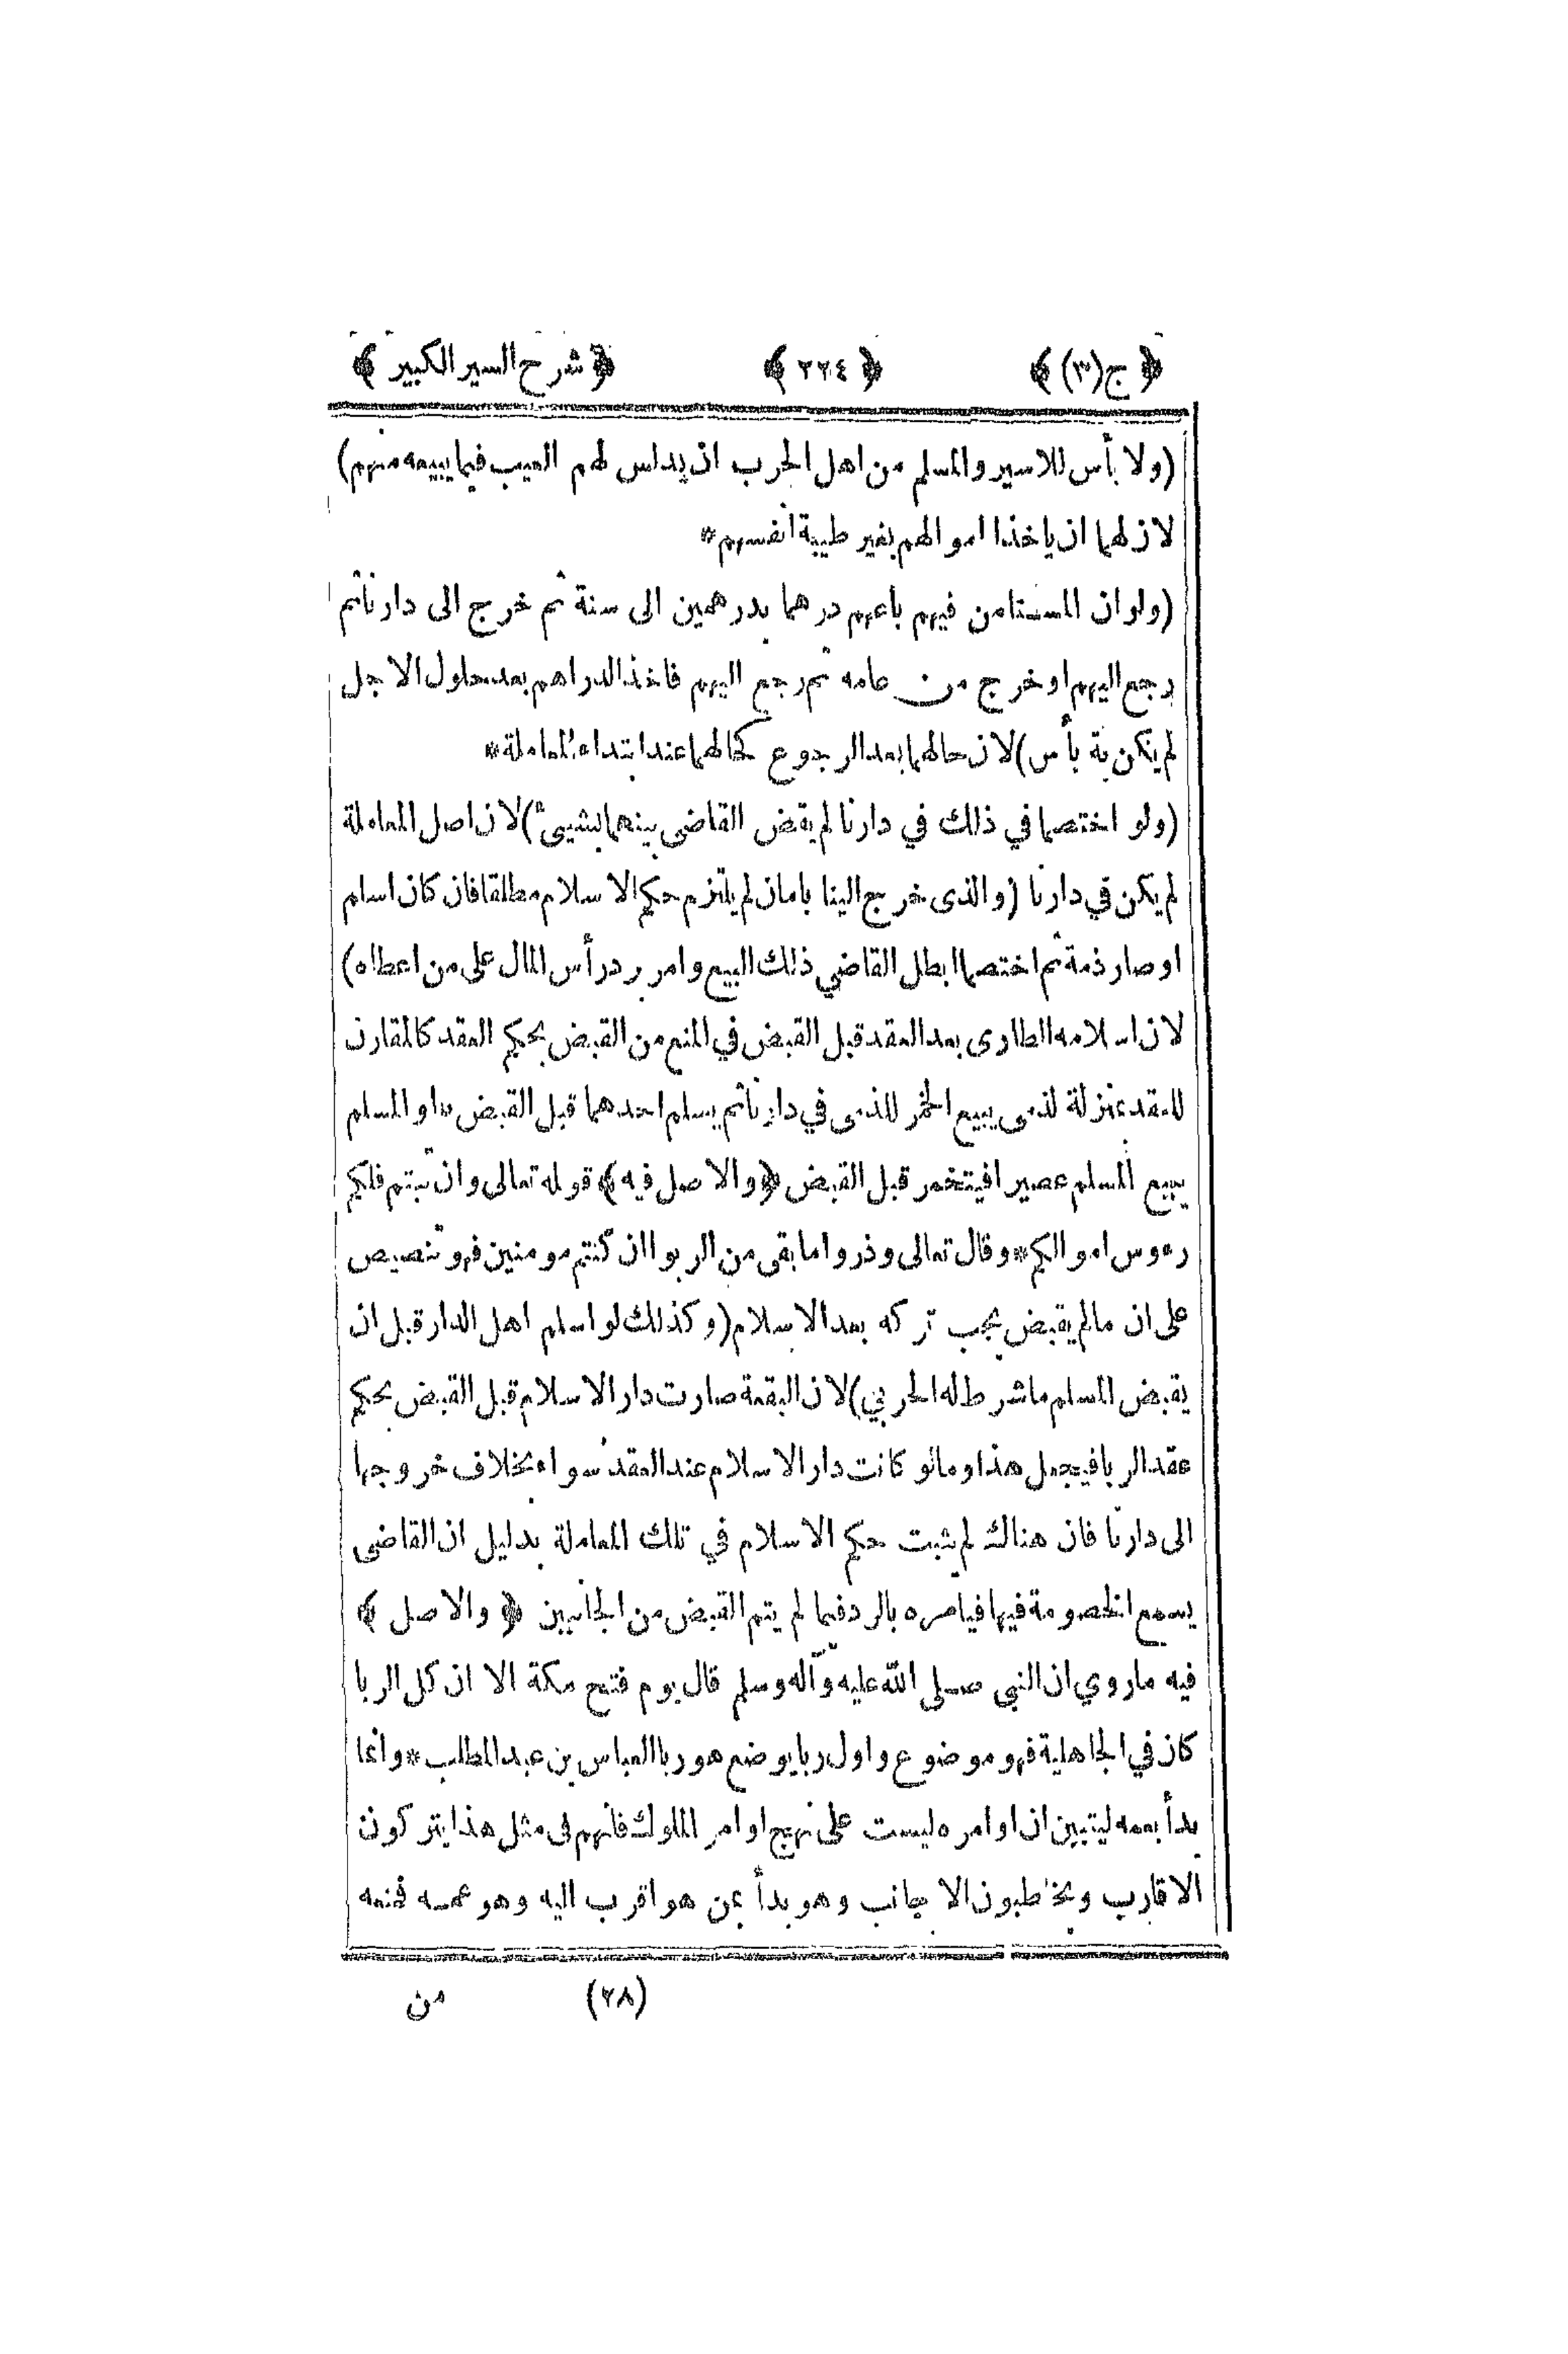 ﴿ ج(٣) ﴾ ﴿ ٢٢٤ ﴾ ﴿ شرح السير الكبير ﴾
(ولا بأس للاسير والمسلم من اهل الحرب ان يدلس لهم العيب فيما يبيعه منهم)
لان لهما ان ياخذا اموالهم بغير طيبة انفسهم*
(ولو ان المستامن فيهم باعهم درهما بدرهمين الى سنة ثم خرج الى دارنا ثم
رجع اليهم او خرج من عامه ثم رجع اليهم فاخذ الدراهم بعد حلول الاجل
لم يكن به بأس) لان حالهما بعد الرجوع كحالهما عند ابتداء المعاملة*
(ولو اختصما في ذلك في دارنا لم يقض القاضى بينهما بشيئ) لان اصل المعاملة
لم يكن في دارنا (والذى خرج الينا بامان لم يلتزم حكم الاسلام مطلقا فان كان اسلم
او صار ذمة ثم اختصما ابطل القاضي ذلك البيع وامر برد رأس المال على من اعطاه)
لان اسلامه الطارى بعد العقد قبل القبض في المنع من القبض بحكم العقد كالمقارن
للعقد بمنزلة لذمى يبيع الخمر للذمى في دارنا ثم يسلم احدهما قبل القبض* او المسلم
يبيع المسلم عصيرا فيتخمر قبل القبض ﴿والاصل فيه﴾ قوله تعالى وان تبتم فلكم
رءوس اموالكم* وقال تعالى وذروا ما بقى من الربوا ان كنتم مومنين فهو تنصيص
على ان ما لم يقبض يجب تركه بعد الاسلام (وكذلك لو اسلم اهل الدار قبل ان
يقبض المسلم ما شرط له الحربي) لان البقعة صارت دار الاسلام قبل القبض بحكم
عقد الربا فيجعل هذا وما لو كانت دار الاسلام عند العقد سواء بخلاف خروجها
الى دارنا فان هناك لم يثبت حكم الاسلام في تلك المعاملة بدليل ان القاضى
يسمع الخصومة فيها فيامره بالرد فيما لم يتم القبض من الجانبين ﴿ والاصل ﴾
فيه ما روي ان النبي صلى الله عليه وآله وسلم قال يوم فتح مكة الا ان كل الربا
كان في الجاهلية فهو موضوع واول ربا يوضع هو ربا العباس بن عبد المطلب* وانما
بدأ بعمه ليتبين ان اوامره ليست على نهج اوامر الملوك فانهم فى مثل هذا يتركون
الاقارب ويخاطبون الاجانب وهو بدأ بمن هو اقرب اليه وهو عمه فمنعه
(٢٨) من